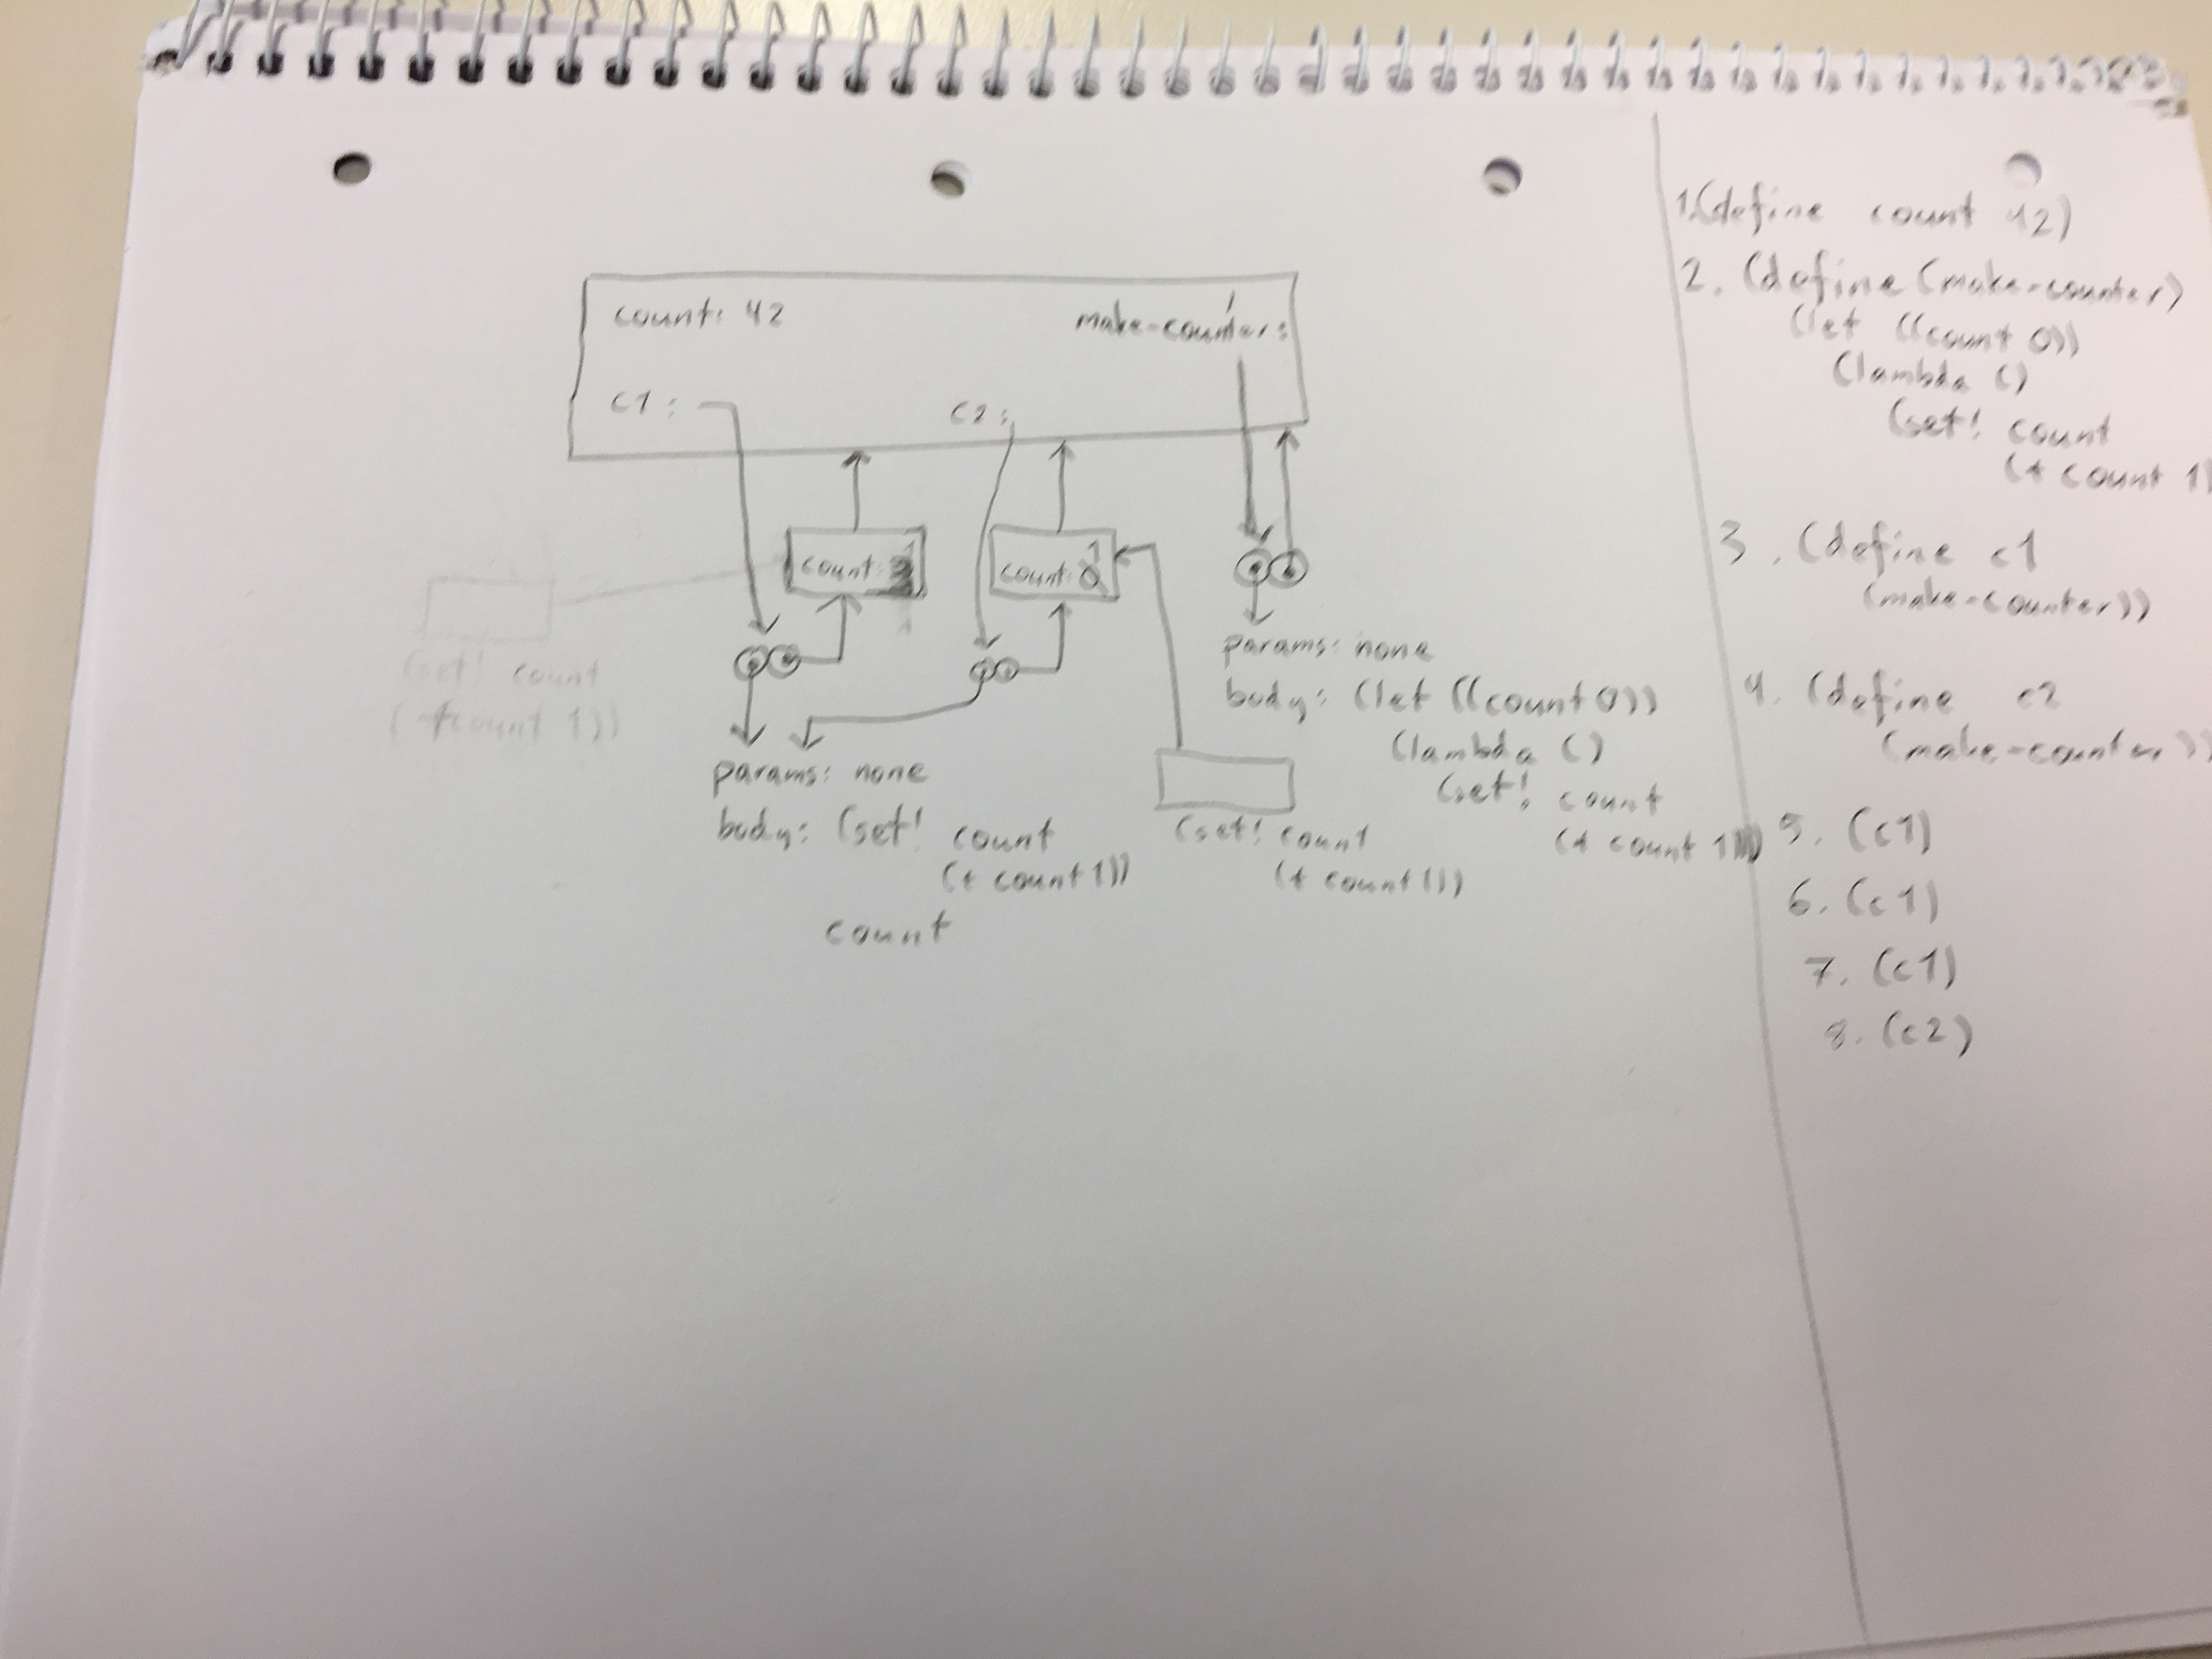 count: 42
make-counter:
c1:
c2:
count:
count: 0 1
(set! count
(+ count 1))
params: none
body: (set! count
(+ count 1))
count
(set! count
(+ count 1))
params: none
body: (let ((count 0))
(lambda ()
(set! count
(+ count 1))))
1. (define count 42)
2. (define (make-counter)
(let ((count 0))
(lambda ()
(set! count
(+ count 1)
3. (define c1
(make-counter))
4. (define c2
(make-counter))
5. (c1)
6. (c1)
7. (c1)
8. (c2)